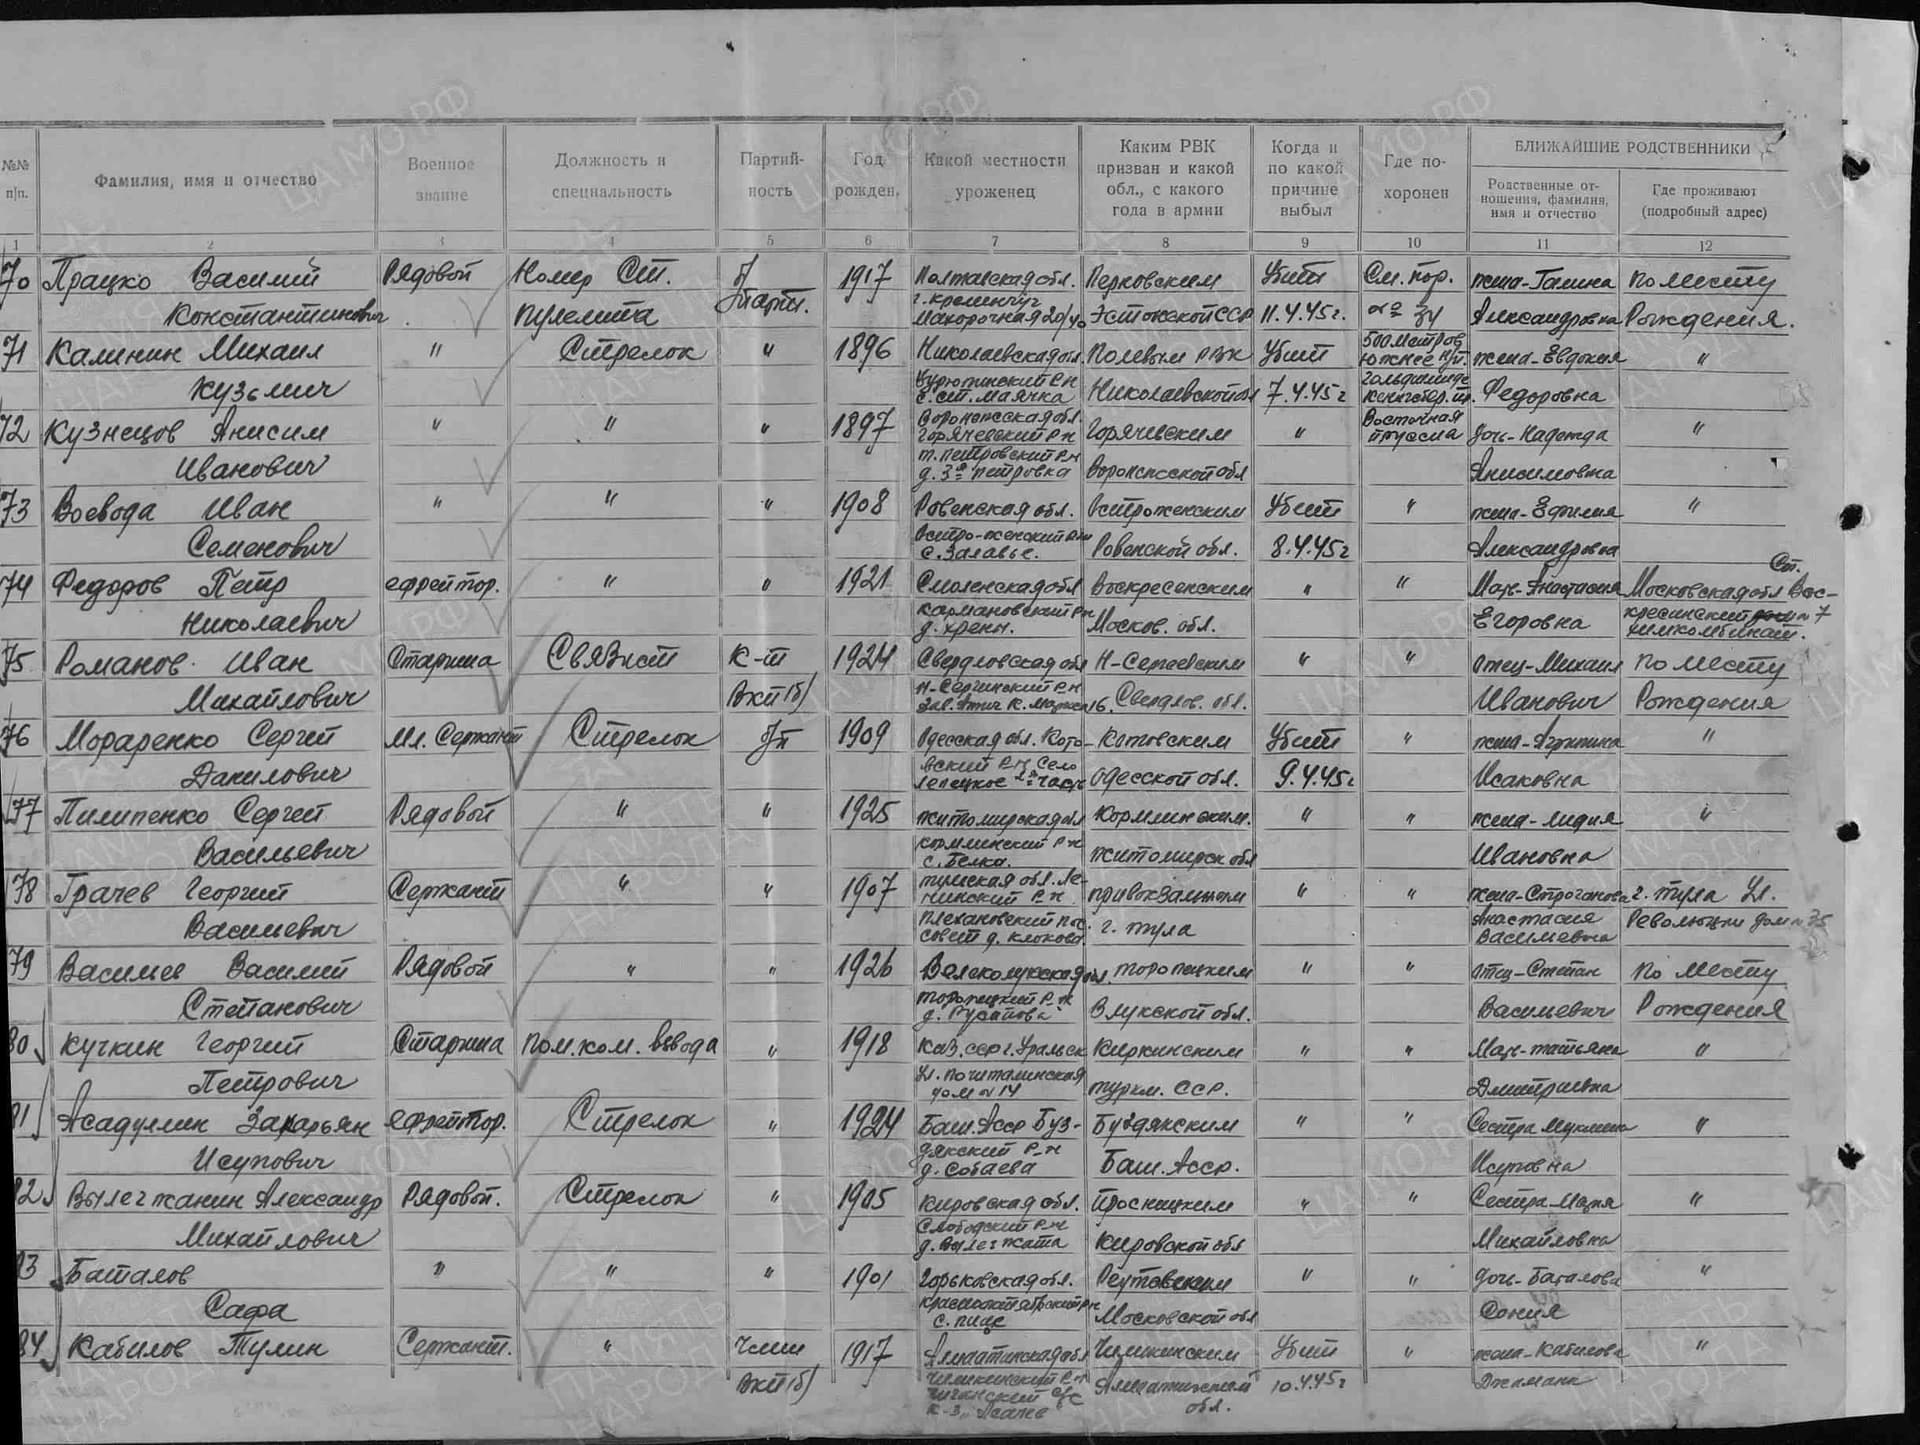 №№ п/п.
Фамилия, имя и отчество
Военное звание
Должность и специальность
Партий-ность
Год рожден.
Какой местности уроженец
Каким РВК призван и какой обл., с какого года в армии
Когда и по какой причине выбыл
Где по-хоронен
БЛИЖАЙШИЕ РОДСТВЕННИКИ
Родственные от-ношения, фамилия, имя и отчество
Где проживают (подробный адрес)
1 2 3 4 5 6 7 8 9 10 11 12
70 Працко Василий Рядовой Номер Ст. б/ 1917 Полтавская обл. Перковским Убит См. пор. жена-Галина По месту
Константинович пулемета парт. г. Кременчуг Эстонской ССР 11.4.45г. № 34 Александровна Рождения.
Махорочная 20/40
71 Калинин Михаил " Стрелок " 1896 Николаевская обл. Полевым РВК Убит 500 метров южнее н/п. жена-Евдокия "
Кузьмич Николаевской обл 7.4.45г Федоровна
72 Кузнецов Анисим " " " 1897 Воронежская обл. Горячевский р-н Горячевским " Восточная Пруссия дочь-Надежда "
Иванович д. 3я Петровка Воронежской обл Анисимовна
73 Воевода Иван " " " 1908 Ровенская обл. Острожским Убит " жена-Ефимия "
Семенович Ровенской обл. 8.4.45г Александровна
74 Федоров Петр ефрейтор. " " 1921 Смоленская обл Воскресенским " " Мать-Анастасия Московская обл Вос-
Ст.
Николаевич Кармановский р-н Москов. обл. Егоровна кресенский 7
химкомбинат.
75 Романов Иван Старшина Связист К-т 1924 Свердловская обл Н-Сергевским " " отец-Михаил по месту
Михайлович ВКП(б) Н-Сергинский р-н Свердлов. обл. Иванович Рождения
76 Мораренко Сергей Мл. Сержант Стрелок б/п 1909 Одесская обл. Кото- Котовским Убит " жена-Агрипина "
Данилович вский р-н село Одесской обл. 9.4.45г Исаковна
77 Пилипенко Сергей Рядовой " " 1925 Житомирская обл Кормлинским. " " жена-Лидия "
Васильевич Кормлинский р-н Житомирск обл Ивановна
с. Белка.
78 Грачев Георгий Сержант " " 1907 Тульская обл. Ле- нинский р-н Привокзальным " " жена-Строганова г. Тула Ул.
Васильевич Плехановский пос. совет г. Тула Анастасия Революции дом № 35
Васильевна
79 Васильев Василий Рядовой " " 1926 Великолукская обл. Торопецким " " отец-Степан По месту
Степанович Торопецкий р-н В лукской обл. Васильевич Рождения
80 Кучкин Георгий Старшина Пом. ком. взвода " 1918 Каз. ССР г. Уральск Киркинским " " Мать-Татьяна "
Петрович дом № 14 Туркм. ССР. Дмитриевна
81 Асадуллин Захарьян ефрейтор. Стрелок " 1924 Баш. Асср Буз- Буздякским " " Сестра "
Исупович дякский р-н Баш. Асср. Исуповна
д. Собаева
82 Вылегжанин Александр Рядовой. Стрелок " 1905 Кировская обл. Просницким " " Сестра Мария "
Михайлович Слободский р-н Кировской обл Михайловна
д. Вылегжата
83 Баталов " " " 1901 Горьковская обл. Реутовским " " дочь-Баталова "
Сафа Краснооктябрьский р-н Московской обл Сония
84 Кабилов Тулин Сержант. " Член 1917 Алмаатинская обл Чиликинским Убит " жена-Кабилова "
ВКП(б) Чиликинский р-н Алматинской 10.4.45г
обл.